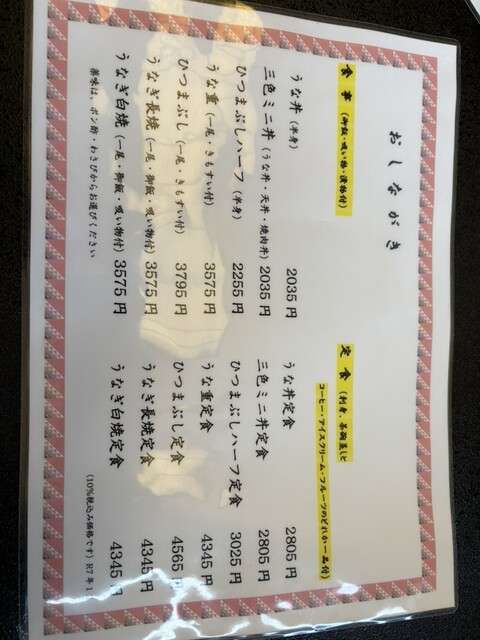 おしながき
食事（御飯・吸い物・漬物付）
うな丼（半身） 2035円
三色ミニ丼（うな丼・天丼・焼肉丼） 2035円
ひつまぶしハーフ（半身） 2255円
うな重（一尾・きもすい付） 3575円
ひつまぶし（一尾・きもすい付） 3795円
うなぎ長焼（一尾・御飯・吸い物付） 3575円
うなぎ白焼（一尾・御飯・吸い物付） 3575円
薬味は、ポン酢・わさびからお選びください
定食（刺身、茶碗蒸しと
コーヒー・アイスクリーム・フルーツのどれか一品付）
うな丼定食 2805円
三色ミニ丼定食 2805円
ひつまぶしハーフ定食 3025円
うな重定食 4345円
ひつまぶし定食 4565円
うなぎ長焼定食 4345円
うなぎ白焼定食 4345円
（10%税込み価格です）R7年1